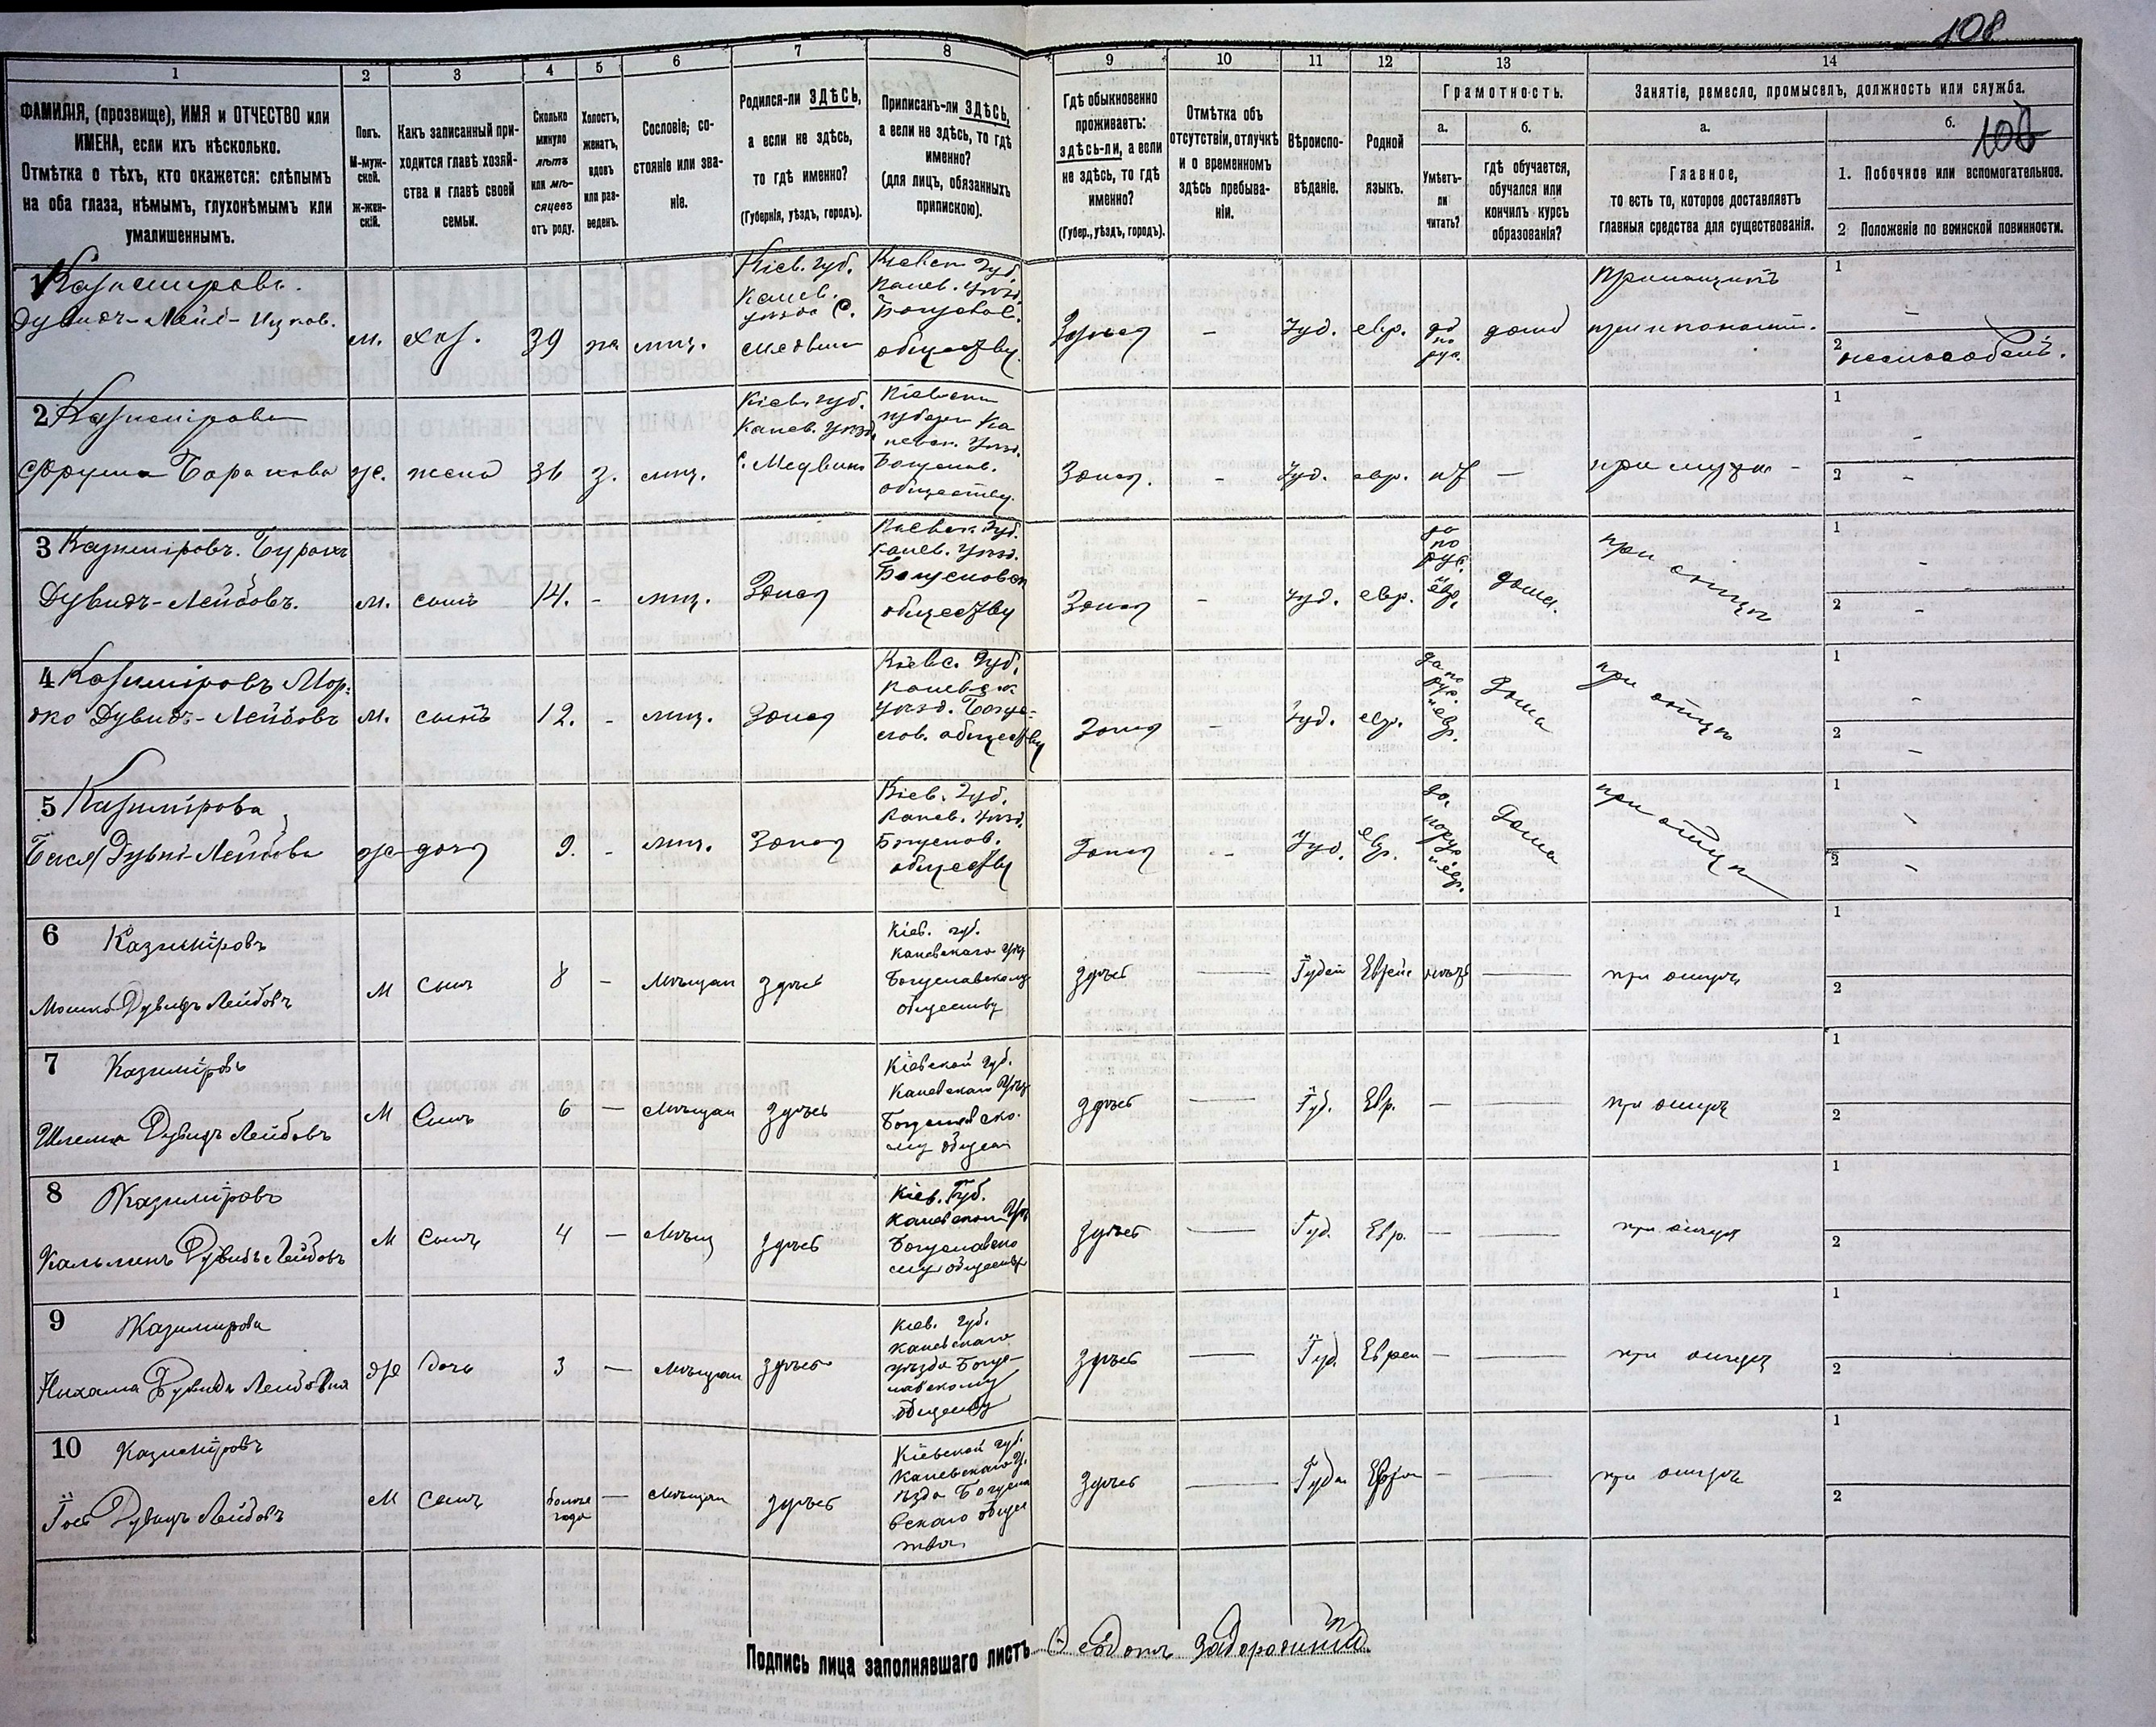 108
1 2 3 4 5 6 7 8 9 10 11 12 13 14
ФАМИЛІЯ, (прозвище), ИМЯ и ОТЧЕСТВО или
ИМЕНА, если ихъ нѣсколько.
Отмѣтка о тѣхъ, кто окажется: слѣпымъ
на оба глаза, нѣмымъ, глухонѣмымъ или
умалишеннымъ.
Полъ.
М-муж-
ской.
Ж-жен-
скій.
Какъ записанный при-
ходится главѣ хозяй-
ства и главѣ своей
семьи.
Сколько
минуло
лѣтъ
или мѣ-
сяцевъ
отъ роду.
Холостъ,
женатъ,
вдовъ
или раз-
веденъ.
Сословіе, со-
стояніе или зва-
ніе.
Родился-ли ЗДѢСЬ,
а если не здѣсь,
то гдѣ именно?
(Губернія, уѣздъ, городъ).
Приписанъ-ли ЗДѢСЬ,
а если не здѣсь, то гдѣ
именно?
(для лицъ, обязанныхъ
припискою).
Гдѣ обыкновенно
проживаетъ:
здѣсь-ли, а если
не здѣсь, то гдѣ
именно?
(Губер., уѣздъ, городъ).
Отмѣтка объ
отсутствіи, отлучкѣ
и о временномъ
здѣсь пребыва-
ніи.
Вѣроиспо-
вѣданіе.
Родной
языкъ.
Грамотность.
а.
Умѣетъ-
ли
читать?
б.
гдѣ обучается,
обучался или
кончилъ курсъ
образованія?
Занятіе, ремесло, промыселъ, должность или служба.
а.
Главное,
то есть то, которое доставляетъ
главныя средства для существованія.
б.
1. Побочное или вспомогательное.
2 Положеніе по воинской повинности.
1 Казимировъ.
Дувидъ-Лейб-Ицков.
м. хоз. 39 же мѣщ.
Кіев. губ.
Канев.
уѣзда С.
Медвин
Кіевск. губ.
Канев. уѣзд.
Богуслав.
обществу.
Здѣсь - Іуд. евр.
да
по
рус.
дома
Прикащикъ
1 -
2 неспособенъ.
2 Казимірова
Фрума Борахова
ж. жена 36 з. мѣщ.
Кіев. губ.
Канев. уѣзд.
с. Медвинъ
Кіевск.
губерн Ка
невск. уѣзд.
Богуслав.
обществу.
Здѣсь. - Іуд. евр. нѣт — при мужѣ -
1 -
2 -
3 Казиміровъ. Бурохъ
Дувидъ-Лейбовъ.
м. сынъ 14. - мѣщ. Здѣсь
Кіевск. губ.
Канев. уѣзд.
Богуславск
обществу
Здѣсь - Іуд. евр.
да
по
рус.
и
евр.
дома. при отцѣ
1 -
2 -
4 Казиміровъ Мор-
дко Дувидъ-Лейбовъ
м. сынъ 12. - мѣщ. Здѣсь
Кіевс. губ.
Каневск
уѣзд. Богу-
слав. обществу
Здѣсь - Іуд. евр.
да по
рус.
и евр.
дома при отцѣ
1 -
2 -
5 Казимірова
Бася Дувид-Лейбова
ж дочь 9. - мѣщ. Здѣсь
Кіев. губ.
Канев. уѣзд.
Богуслав.
обществу
Здѣсь - Іуд. евр.
да,
по рус
и евр.
дома при отцѣ
1 -
2 -
6 Казиміровъ
Мошко Дувидъ Лейбовъ
М Сынъ 8 - Мѣщан здѣсь
Кіев. губ.
Каневскаго уѣз
Богуславскому
обществу
здѣсь — Іудей Еврейс нѣтъ — при отцѣ
1
2
7 Казиміровъ
Шлема Дувидъ Лейбовъ
М Сынъ 6 — Мѣщан здѣсь
Кіевской губ.
Каневскаго уѣз
Богуславско-
му общес
здѣсь — Іуд. Евр. — — при отцѣ
1
2
8 Казиміровъ
Кальменъ Дувидъ Лейбовъ
М Сынъ 4 — Мѣщ здѣсь
Кіев. Губ.
Каневскаго Уѣз
Богуславско
му обществу
здѣсь — Іуд. Евр. — — при отцѣ
1
2
9 Казимирова
Нихама Дувидъ Лейбовна
Ж Дочь 3 — Мѣщан здѣсь
Кіев. губ.
Каневскаго
уѣзда Богу-
славскому
обществу
здѣсь — Іуд. Еврей — — при отцѣ
1
2
10 Казиміровъ
Іось Дувидъ Лейбовъ
М Сынъ
больше
года
— Мѣщан здѣсь
Кіевской губ.
Каневскаго У.
ѣзда Богусла
вскаго общес
тва
здѣсь — Іудей Еврей — — при отцѣ
1
2
Подпись лица заполнявшаго листъ Ѳедотъ Задорожный